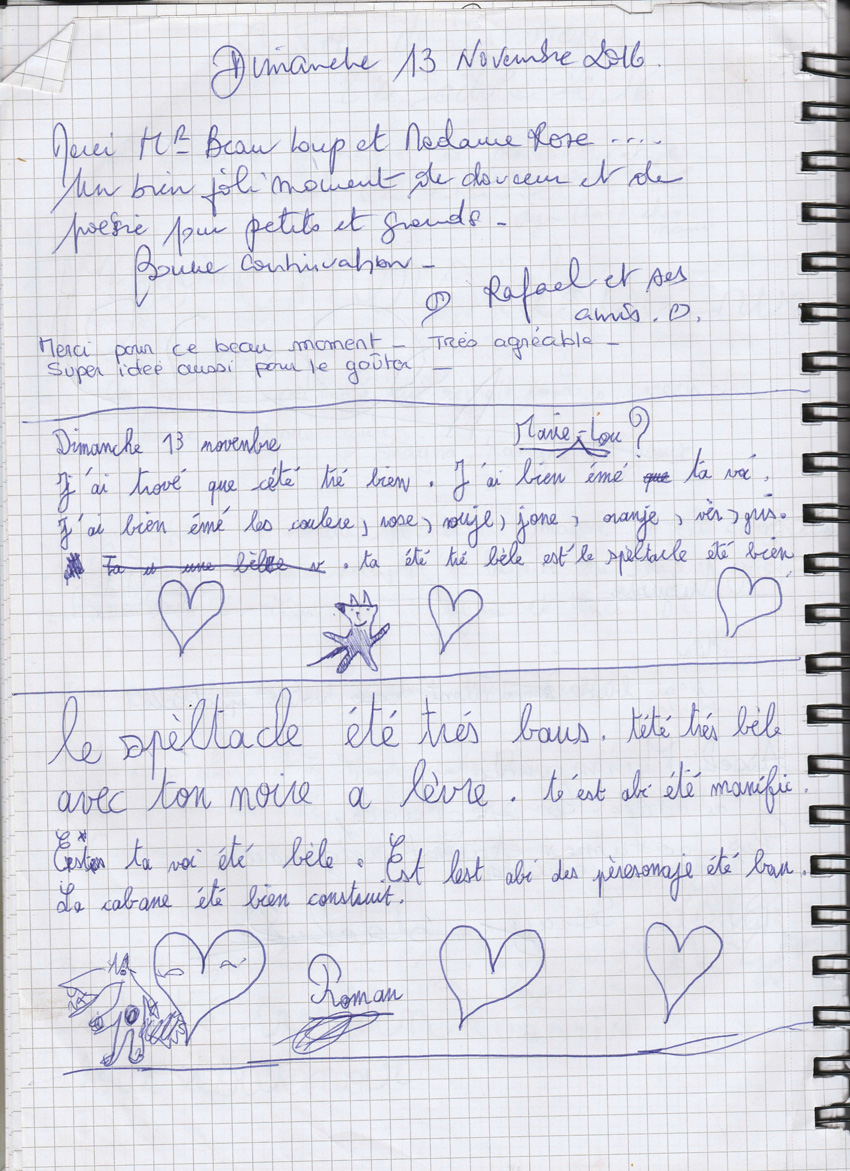 Dimanche 13 Novembre 2016.
Merci Mr Beau Loup et Madame Rose ....
Un bien joli moment de douceur et de
poésie pour petits et grands -
Bonne continuation -
Rafael et ses
amis.
Merci pour ce beau moment - Très agréable -
Super idée aussi pour le goûter -
Dimanche 13 novenbre
Marie-Lou ?
J'ai trové que cété tré bien. J'ai bien émé que ta voi.
J'ai bien émé les coulere, rose, rouje, jone, oranje, vèr, gris.
Ta une bèlle v . ta été tré bèle est le spèltacle été bien
le spèltacle été trés baus. tété trés bèle
avec ton noire a lèvre. té est abi été manific.
ta voi été bèle. Est lest abi des pèresonaje été bau.
La cabane été bien construit.
Roman